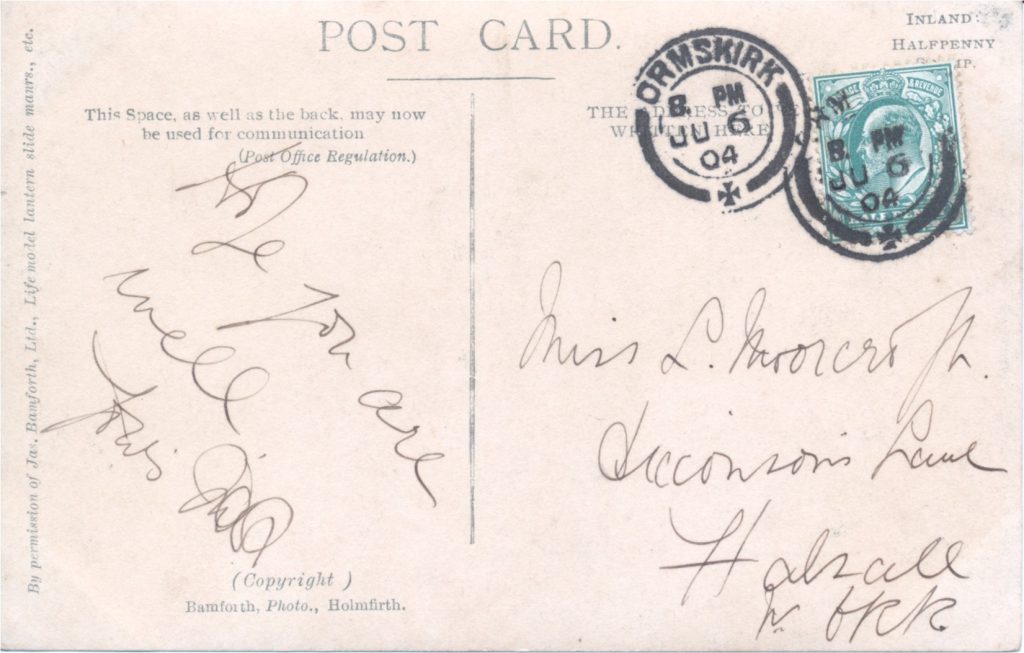 POST CARD.
INLAND:
HALFPENNY
This Space, as well as the back, may now
be used for communication
(Post Office Regulation.)
THE ADDRESS TO
WRITTEN HERE
ORMSKIRK
8. PM
JU 6
04
ORM
8. PM
JU 6
04
Hope you are
well
Miss L. Moorcroft.
Lane
Halsall
Nr OKK
(Copyright)
Bamforth, Photo., Holmfirth.
By permission of Jas. Bamforth, Ltd., Life model lantern slide manrs., etc.